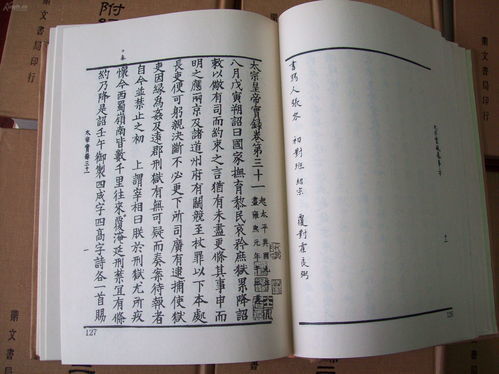 書寫人張
初對班 紹宗
覆對霍良弼
太宗皇帝實錄卷第三十一
起太平興國九年
盡雍熙元年
八月戊寅朔詔曰國家撫育黎民哀矜庶獄累降詔
敕以儆有司而約束之言猶有未盡更條其事申而
明之應兩京及諸道州府有鬭競至杖罪以下本處
長吏便可躬親決斷不必更下所司廣有逮捕使獄
吏因緣為姦及遠郡刑獄有無可疑而奏案待報者
自今並禁止之初 上謂宰相曰朕於刑獄尤所戒
懷今西蜀嶺南皆數千里往來覆淹延刑禁宜有條
約乃降是詔壬午御製四成字四高字詩各一首賜
太宗實錄三十一
一
127
鼎文書局印行
附
鼎文書局